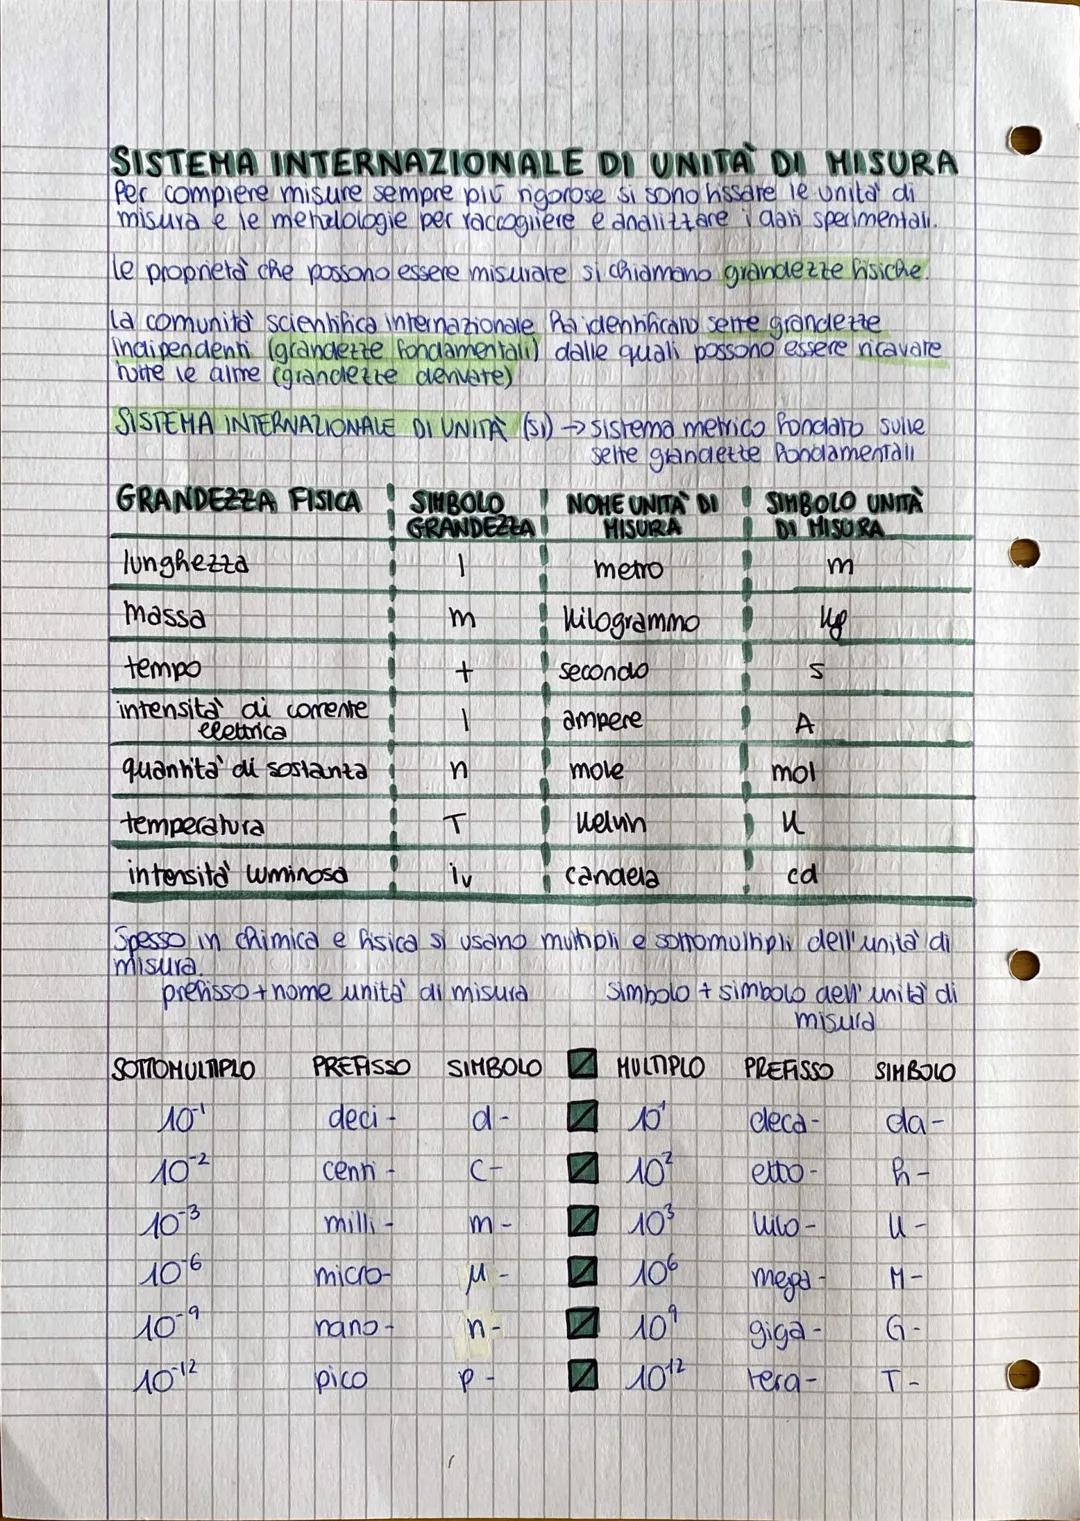 SISTEMA INTERNAZIONALE DI UNITÀ DI MISURA
Per compiere misure sempre più rigorose si sono fissate le unità di
misura e le metodologie per raccogliere e analizzare i dati sperimentali.
le proprietà che possono essere misurate si chiamano grandezze fisiche.
La comunità scientifica internazionale ha identificato sette grandezze
indipendenti (grandezze fondamentali) dalle quali possono essere ricavate
tutte le altre (grandezze derivate)
SISTEMA INTERNAZIONALE DI UNITÀ (SI) → sistema metrico fondato sulle
sette grandezze fondamentali
GRANDEZZA FISICA SIMBOLO GRANDEZZA NOME UNITÀ DI MISURA SIMBOLO UNITÀ DI MISURA
lunghezza l metro m
massa m kilogrammo kg
tempo t secondo s
intensità di corrente elettrica I ampere A
quantità di sostanza n mole mol
temperatura T kelvin K
intensità luminosa iv candela cd
Spesso in chimica e fisica si usano multipli e sottomultipli dell'unità di
misura.
prefisso + nome unità di misura simbolo + simbolo dell'unità di
misura
SOTTOMULTIPLO PREFISSO SIMBOLO MULTIPLO PREFISSO SIMBOLO
10⁻¹ deci- d- 10¹ deca- da-
10⁻² centi- c- 10² etto- h-
10⁻³ milli- m- 10³ kilo- k-
10⁻⁶ micro- μ- 10⁶ mega- M-
10⁻⁹ nano- n- 10⁹ giga- G-
10⁻¹² pico p- 10¹² tera- T-